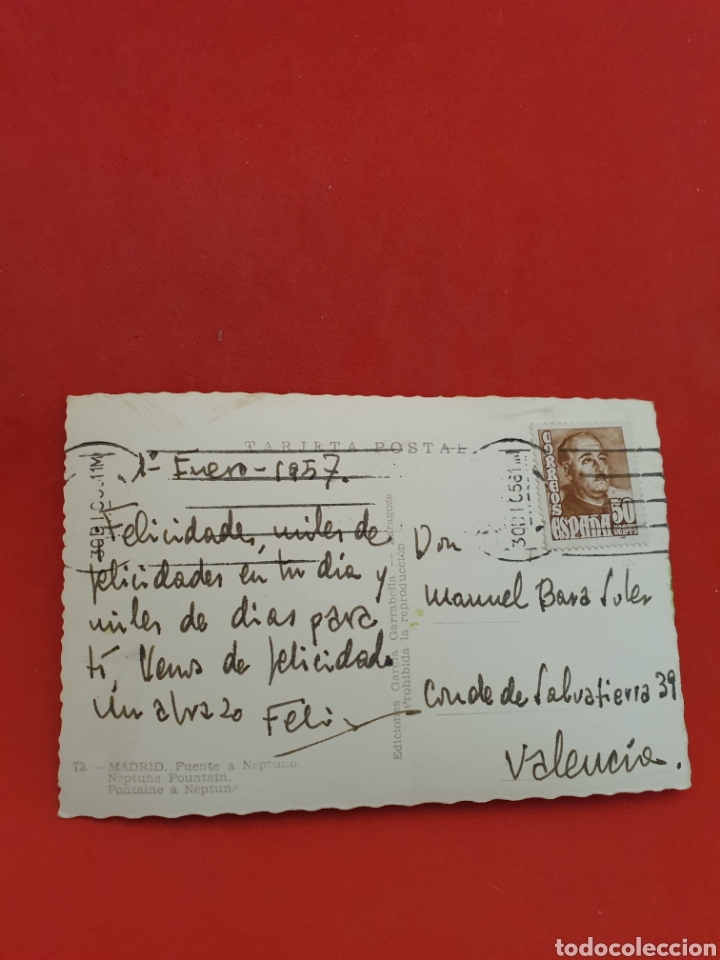 TARJETA POSTAL
CORREOS
ESPAÑA
50
30DIC56 11M
1º Enero - 1957.
Felicidades, miles de
felicidades en tu día y
miles de días para
tí, llenos de felicidad
Un abrazo Feli
Don
Manuel Basa Soler
Conde de Salvatierra 39
Valencia.
Ediciones García Garrabella - Zaragoza
Prohibida la reproducción
72 - MADRID. Fuente a Neptuno.
Neptune Fountain.
Fontaine à Neptune
todocoleccion